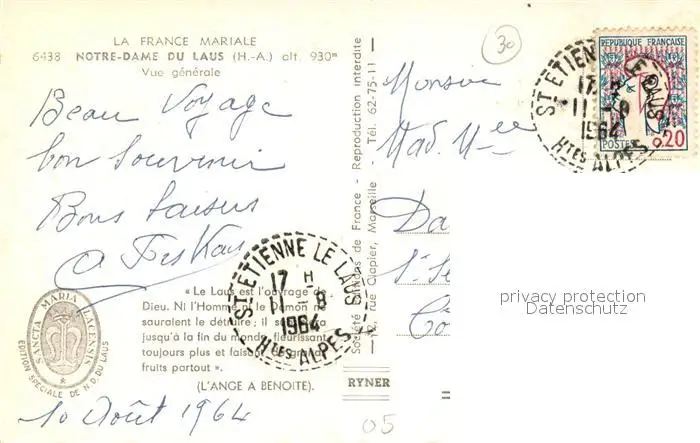 LA FRANCE MARIALE
6438 NOTRE-DAME DU LAUS (H.-A.) alt. 930m
Vue générale
Beau Voyage
bon Souvenir
Bons baisers
« Le Laus est l'ouvrage de
Dieu. Ni l'Homme ni le Démon ne
sauraient le détruire; il
jusqu'à la fin du monde, fleurissant
toujours plus et faisant de grands
fruits partout ».
(L'ANGE A BENOITE).
SANCTA MARIA LACENSIS
EDITION SPÉCIALE DE N.D. DU LAUS
10 Août 1964
Société Editions de France - Reproduction interdite
rue Clapier, Marseille - Tél. 62-75-11
RYNER
ST ETIENNE LE LAUS
17 H
11 - 8
1964
HTES ALPES
30
REPUBLIQUE FRANÇAISE
POSTES 0,20
ST ETIENNE LE LAUS
17 H
11 - 8
1964
HTES ALPES
Monsieur
Mad. Mlle
Da
05
privacy protection
Datenschutz